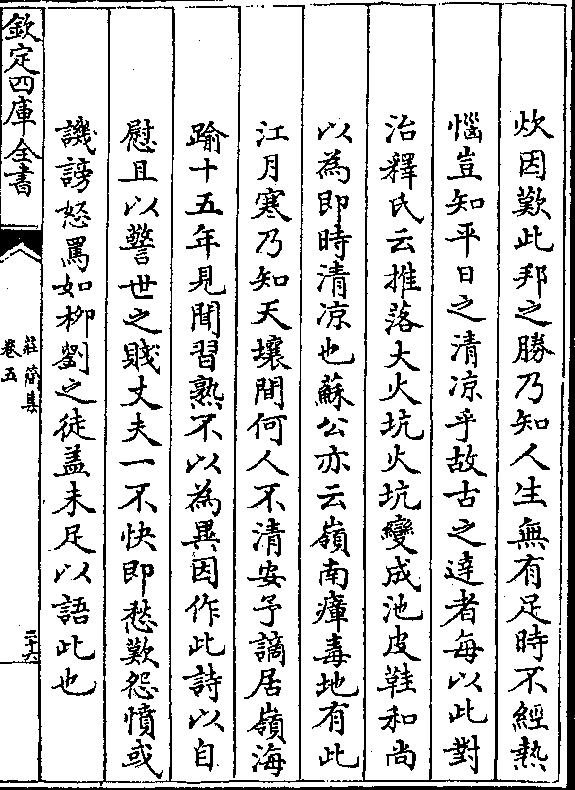 炊因歎此邦之勝乃知人生無有足時不經熱
惱豈知平日之清凉乎故古之達者每以此對
治釋氏云推落大火坑火坑變成池皮鞋和尚
以為即時清凉也蘇公亦云嶺南瘴毒地有此
江月寒乃知天壤間何人不清安予謫居嶺海
踰十五年見聞習熟不以為異因作此詩以自
慰且以警世之賤丈夫一不快即愁歎怨憤或
譏謗怒罵如柳劉之徒蓋未足以語此也
欽定四庫全書
莊簡集
卷五
二十六